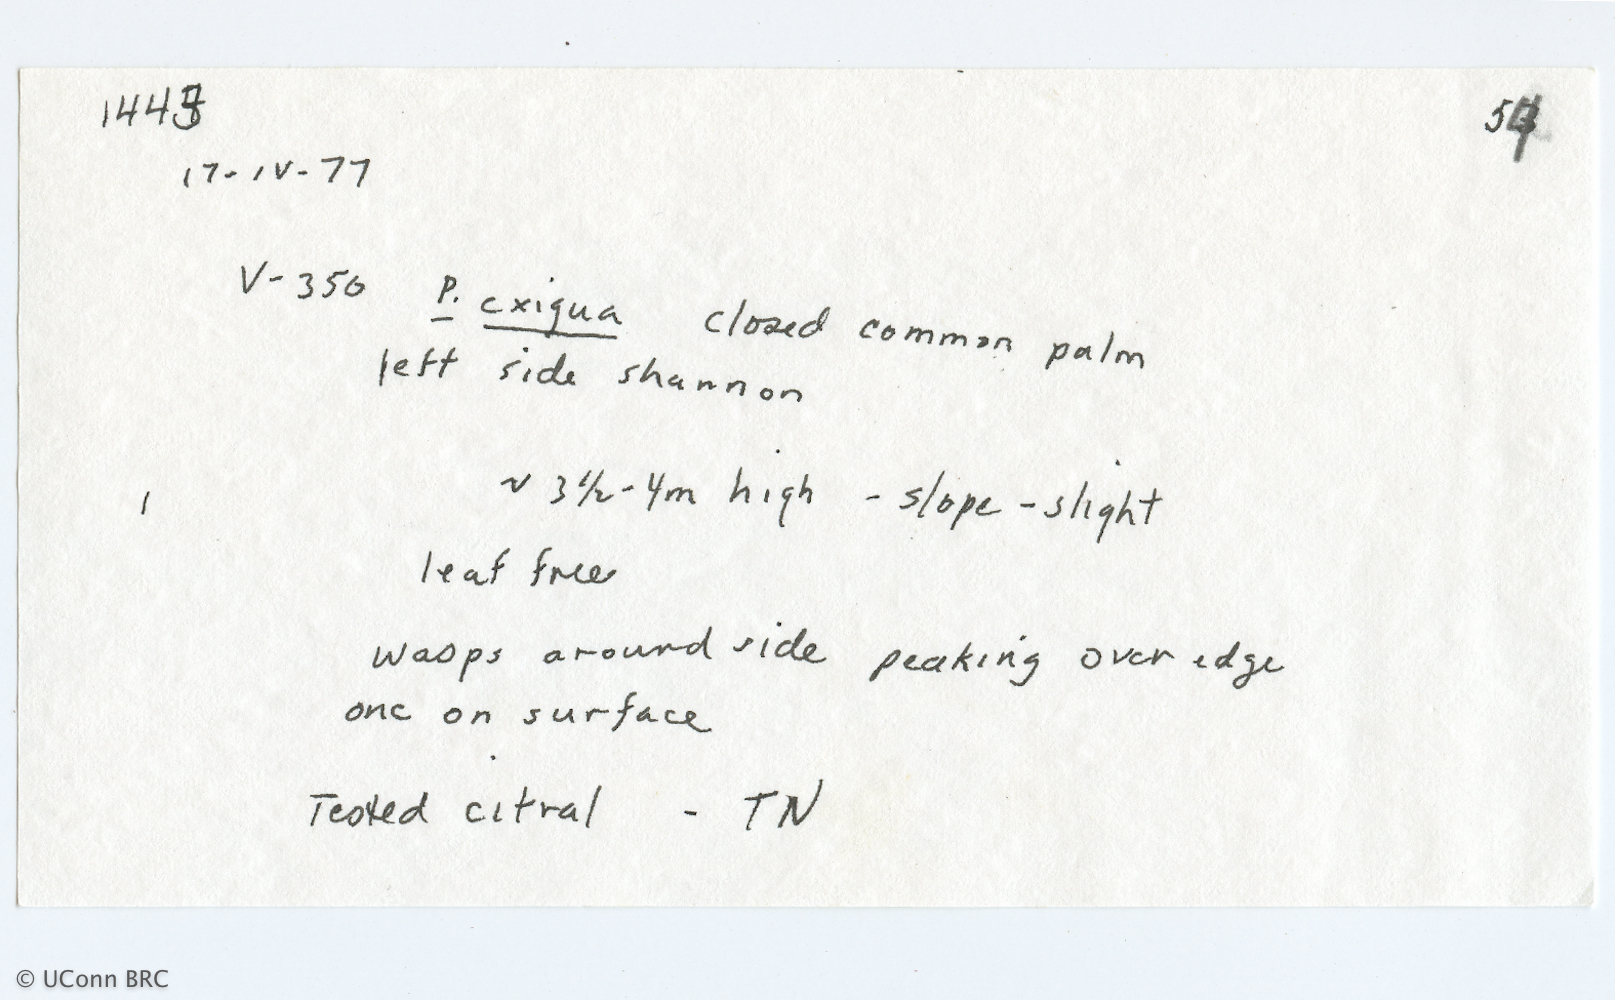 17-IV-77
V-350 P. exigua closed common palm
left side shannon
~ 3½-4m high - slope - slight
1
leaf free
wasps around side peaking over edge
one on surface
Tested citral - TN
© UConn BRC